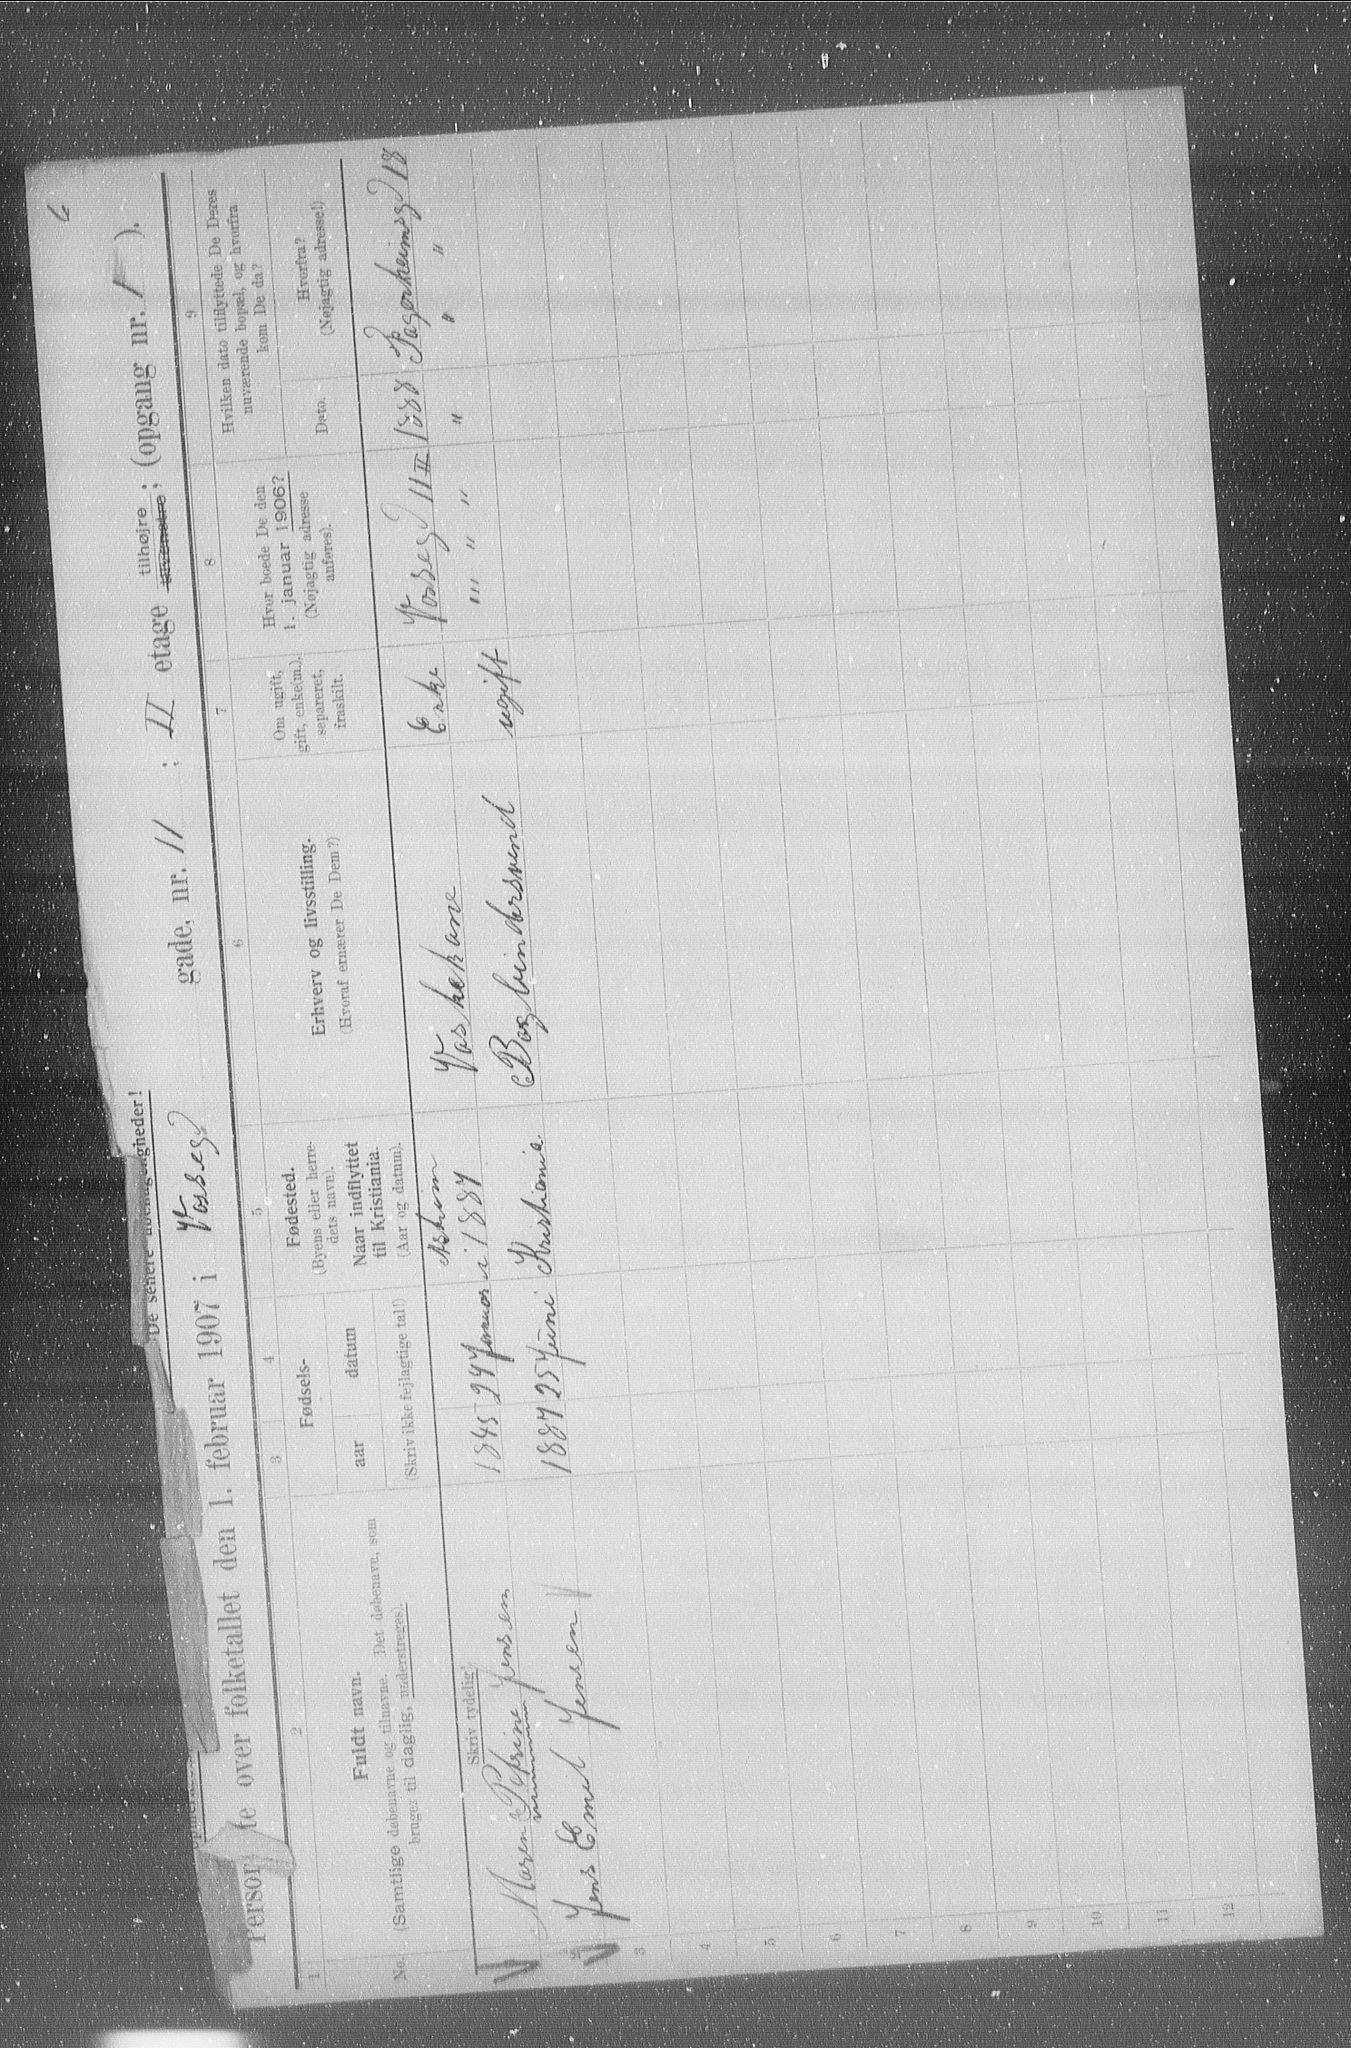 6
De senere ubehageligheder!
over folketallet den 1. februar 1907 i Vosseg gade, nr. 11 ; II etage tilhøjre tilvenstre; (opgang nr. 1 ).
1 2 3 4 5 6 7 8 9
No.
Fuldt navn.
(Samtlige døbenavne og tilnavne. Det døbenavn, som
bruges til daglig, understreges).
Skriv tydelig!
Fødsels-
aar datum
(Skriv ikke fejlagtige tal!)
Fødested.
(Byens eller herre-
dets navn).
Naar indflyttet
til Kristiania.
(Aar og datum).
Erhverv og livsstilling.
(Hvoraf ernærer De Dem?)
Om ugift,
gift, enke(m.),
separeret,
fraskilt.
Hvor boede De den
1. januar 1906?
(Nøjagtig adresse
anføres).
Hvilken dato tilflyttede De Deres
nuværende bopæl, og hvorfra
kom De da?
Dato.
Hvorfra?
(Nøjagtig adresse!)
Maren Petrine Jensen 1845 24 Januar i 1887 Vaskekone Enke Vosseg 11 II 1888 18
2 Jens Emil Jensen 1887 25 Juni Kristiania. Bogbindersvend ugift " " " " " "
3
4
5
6
7
8
9
10
11
12